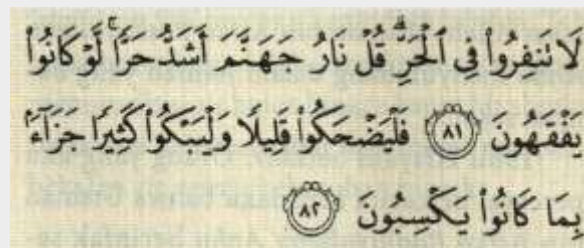 لَا تَنفِرُوا۟ فِى ٱلْحَرِّ ۗ قُلْ نَارُ جَهَنَّمَ أَشَدُّ حَرًّا ۚ لَّوْ كَانُوا۟
يَفْقَهُونَ ٨١ فَلْيَضْحَكُوا۟ قَلِيلًا وَلْيَبْكُوا۟ كَثِيرًا جَزَآءًۢ
بِمَا كَانُوا۟ يَكْسِبُونَ ٨٢